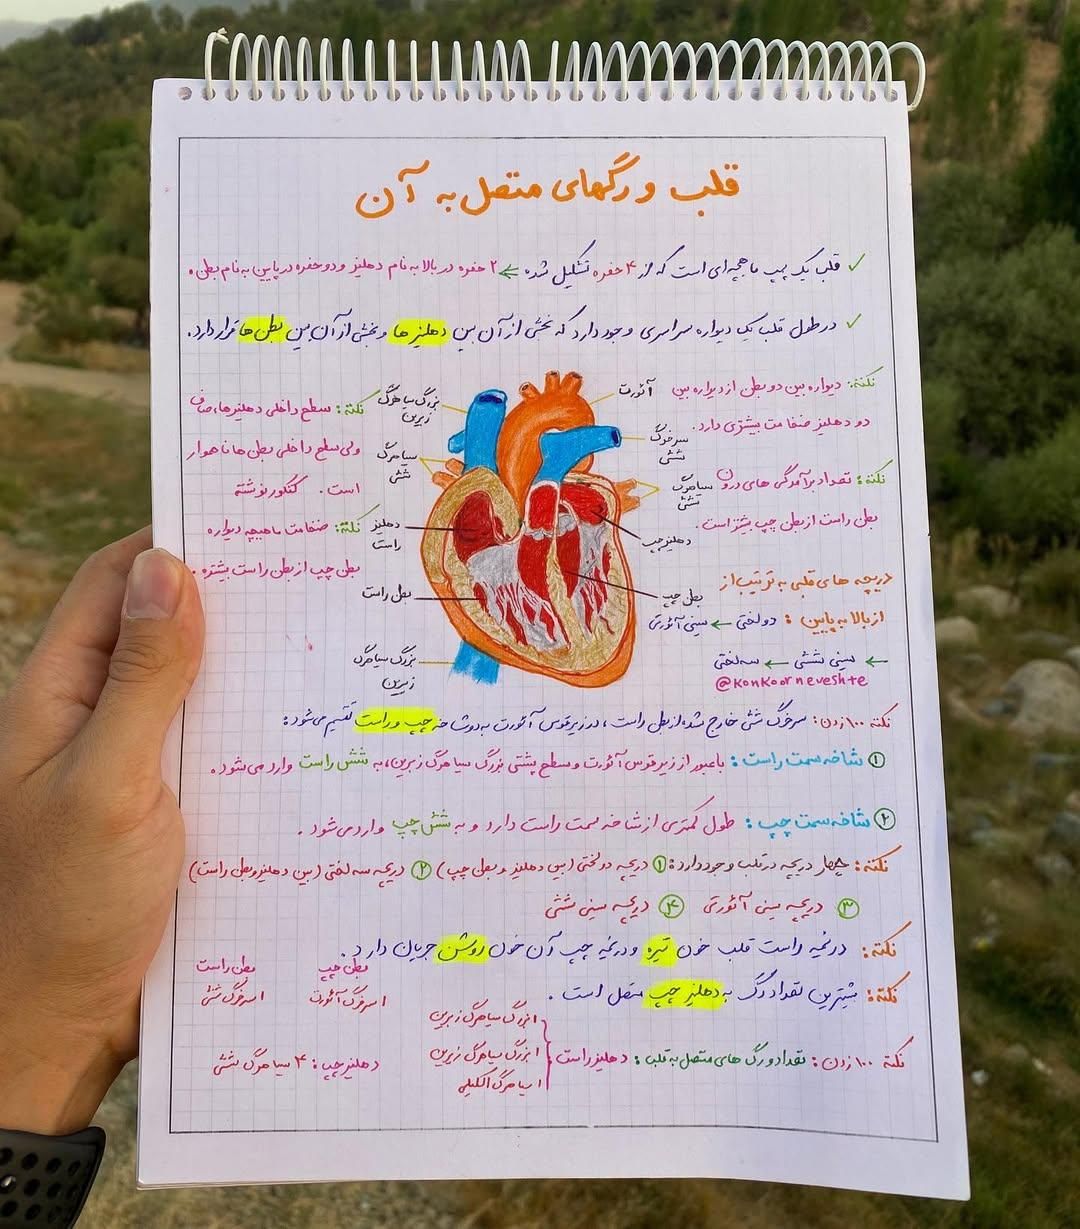 قلب و رگهای متصل به آن
قلب یک پمپ ماهیچه‌ای است که از ۴ حفره تشکیل شده ← ۲ حفره در بالا به نام دهلیز و دو حفره در پایین به نام بطن.
در طول قلب یک دیواره سراسری وجود دارد که بخشی از آن بین دهلیزها و بخشی از آن بین بطن‌ها قرار دارد.
نکته: دیواره بین دو بطن از دیواره بین
دو دهلیز ضخامت بیشتری دارد.
نکته: تعداد برآمدگی های درون
بطن راست از بطن چپ بیشتر است.
دریچه های قلبی به ترتیب از
از بالا به پایین: دولختی ← سینی آئورتی
← سینی ششی ← سه لختی
@konkoorneveshte
آئورت
سرخرگ
ششی
سیاهرگ
ششی
دهلیز چپ
بطن چپ
بزرگ سیاهرگ
زبرین
سیاهرگ
ششی
دهلیز
راست
بطن راست
بزرگ سیاهرگ
زیرین
نکته: سطح داخلی دهلیزها، صاف
ولی سطح داخلی بطن ها ناهموار
است. کنکور نوشته
نکته: ضخامت ماهیچه دیواره
بطن چپ از بطن راست بیشتره.
نکته ۱۰۰ زدن: سرخرگ ششی خارج شده از بطن راست، در زیر قوس آئورت به دو شاخه چپ و راست تقسیم می‌شود:
① شاخه سمت راست: با عبور از زیر قوس آئورت و سطح پشتی بزرگ سیاهرگ زبرین، به شش راست وارد می‌شود.
② شاخه سمت چپ: طول کمتری از شاخه سمت راست دارد و به شش چپ وارد می‌شود.
نکته: چهار دریچه در قلب وجود دارد: ① دریچه دولختی (بین دهلیز و بطن چپ) ② دریچه سه لختی (بین دهلیز و بطن راست)
③ دریچه سینی آئورتی ④ دریچه سینی ششی
نکته: در نیمه راست قلب خون تیره و در نیمه چپ آن خون روشن جریان دارد.
نکته: بیشترین تعداد رگ به دهلیز چپ متصل است.
نکته ۱۰۰ زدن: تعداد رگ های متصل به قلب: دهلیز راست
۱ بزرگ سیاهرگ زبرین
۱ بزرگ سیاهرگ زیرین
۱ سیاهرگ اکلیلی
دهلیز چپ: ۴ سیاهرگ ششی
بطن چپ
۱ سرخرگ آئورت
بطن راست
۱ سرخرگ ششی